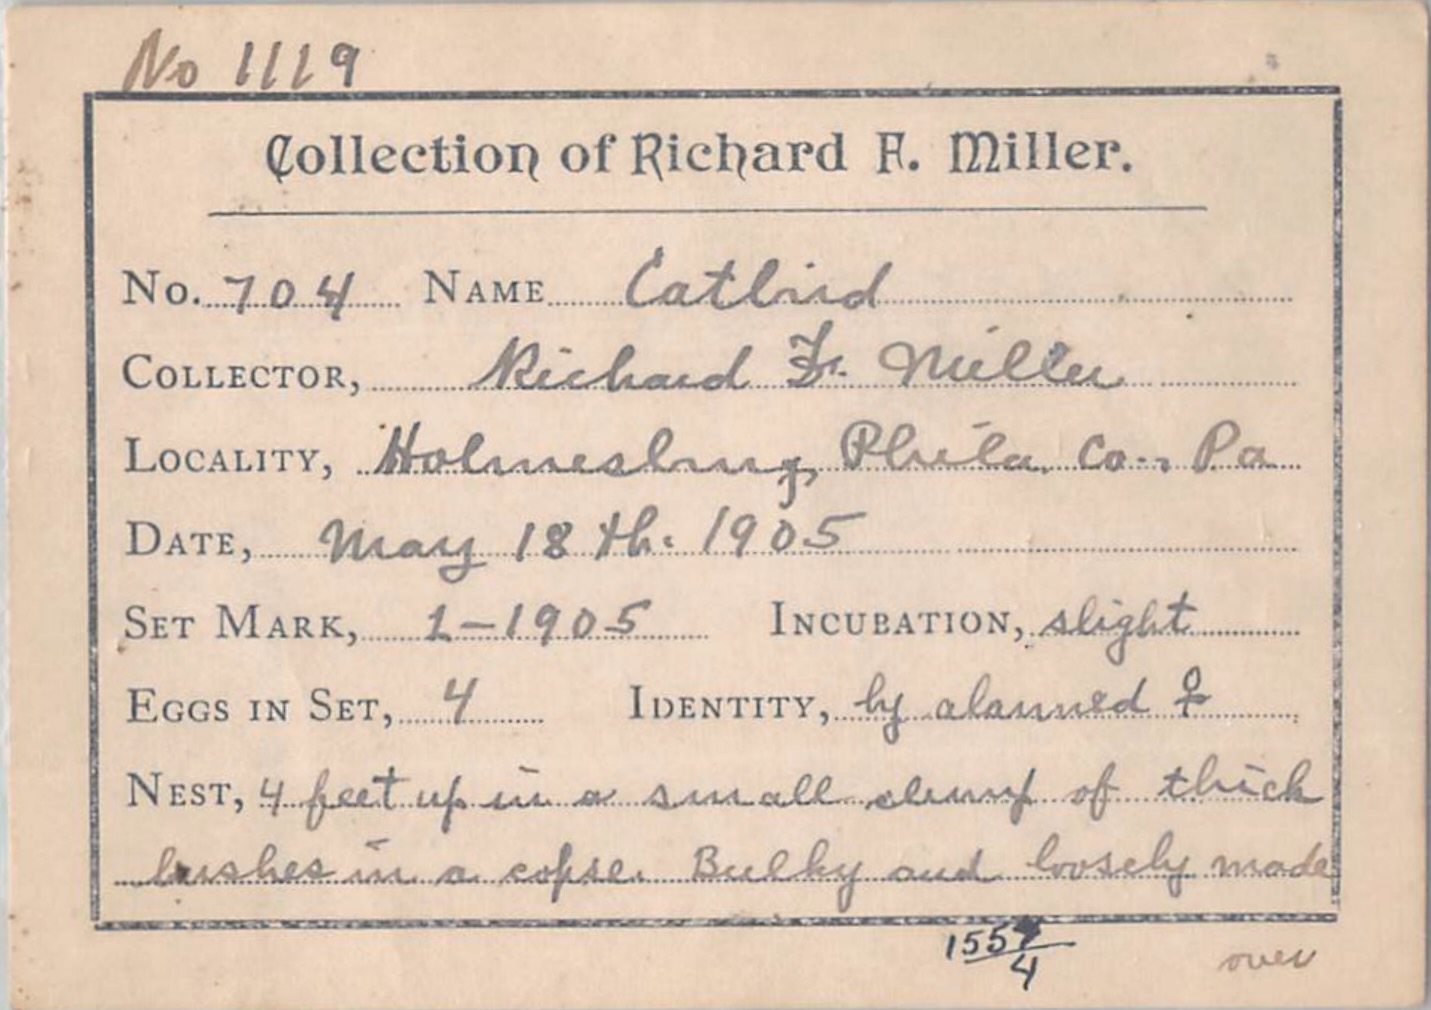 No 1119
Collection of Richard F. Miller.
No. 704 NAME Catbird
COLLECTOR, Richard F. Miller
LOCALITY, Holmesburg, Phila. Co., Pa
DATE, May 18th. 1905
SET MARK, 1-1905 INCUBATION, slight
EGGS IN SET, 4 IDENTITY, by alarmed ♀
NEST, 4 feet up in a small clump of thick
bushes in a copse. Bulky and loosely made
4
over